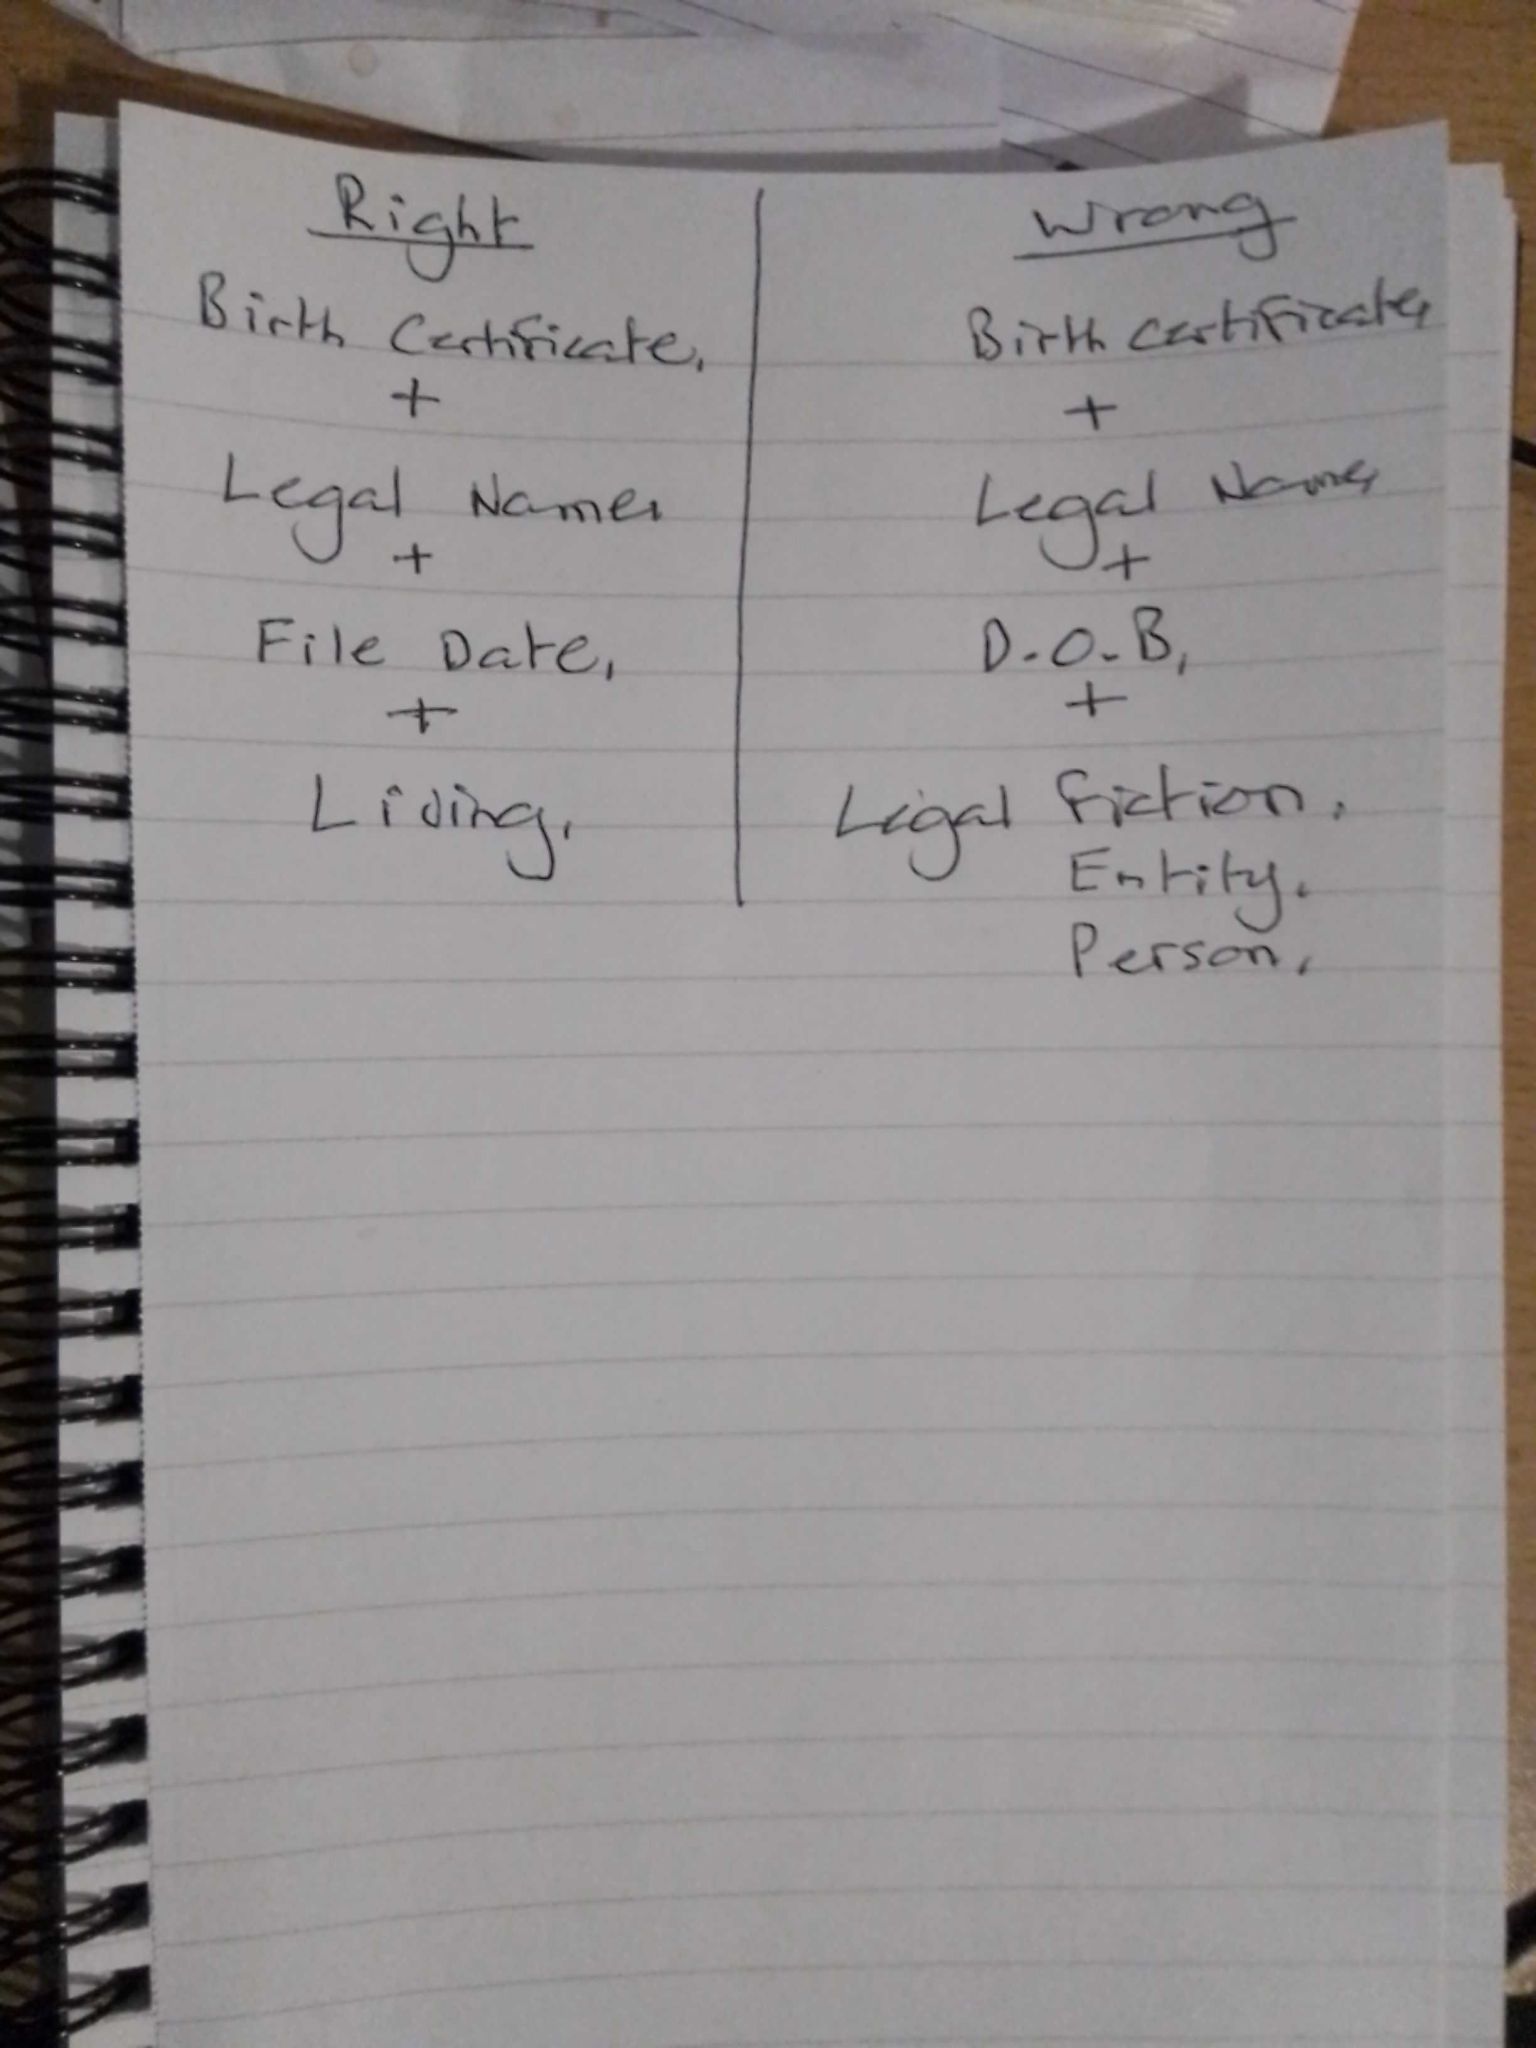 Right
Birth Certificate,
+
Legal Name,
+
File Date,
+
Living,
Wrong
Birth certificate,
+
Legal Name,
+
D.O.B,
+
Legal fiction,
Entity.
Person,